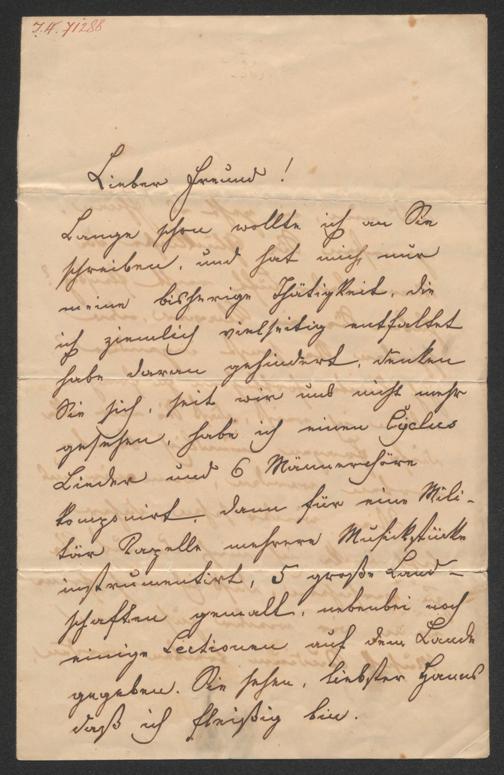 I.N. 71288
Lieber Freund!
Lange schon wollte ich an Sie
schreiben, und hat mich nur
meine bisherige Thätigkeit, die
ich ziemlich vielseitig entfaltet
habe daran gehindert, denken
Sie sich, seit wir uns nicht mehr
gesehen, habe ich einen Cyclus
Lieder und 6 Männerchöre
komponirt, dann für eine Mili-
tär Kapelle mehrere Musikstücke
instrumentirt, 5 große Land-
schaften gemalt, nebenbei noch
einige Lectionen auf dem Lande
gegeben. Sie sehen, liebster Hanns
daß ich fleißig bin.